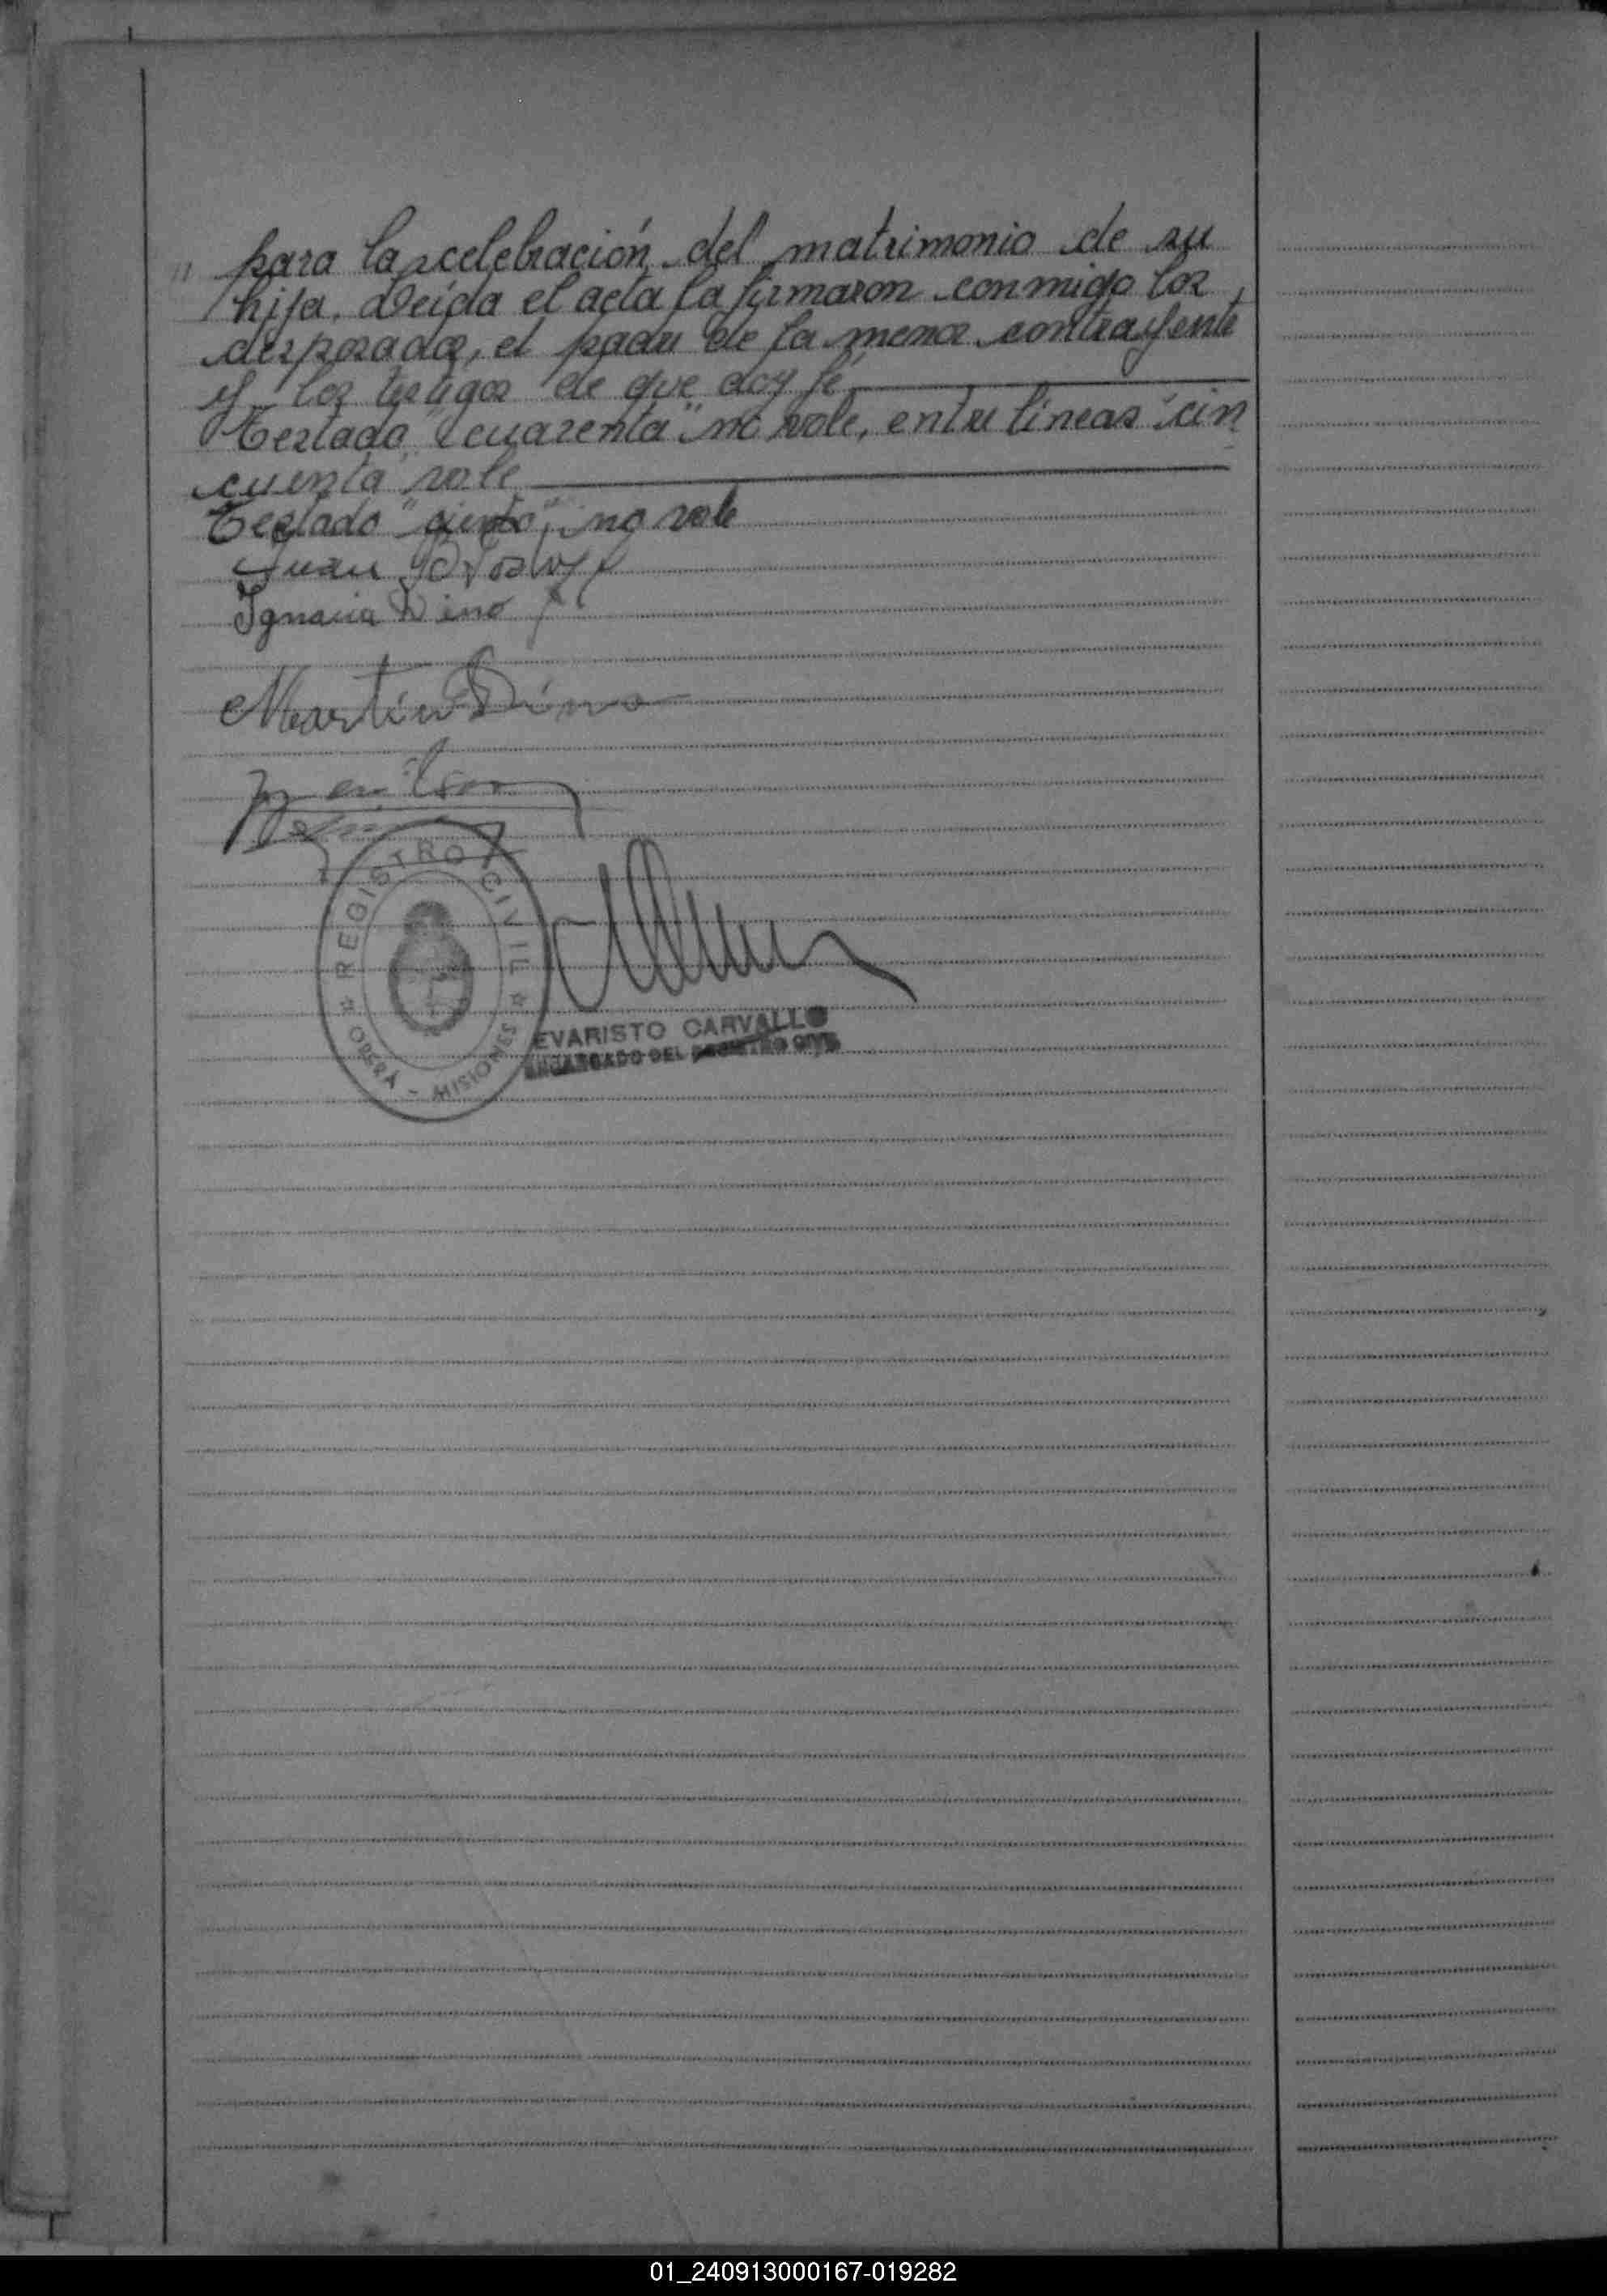 " para la celebración del matrimonio de su
hija. Leída el acta la firmaron conmigo los
desposados, el padre de la menor contrayente
y los testigos de que doy fé
Testado "cuarenta" no vale, entre líneas "cin
cuenta" vale
Testado no vale
Juan
Ignacia Dino
Martín Dino
REGISTRO CIVIL
OBERA - MISIONES
EVARISTO CARVALLO
ENCARGADO DEL REGISTRO CIVIL
01_240913000167-019282